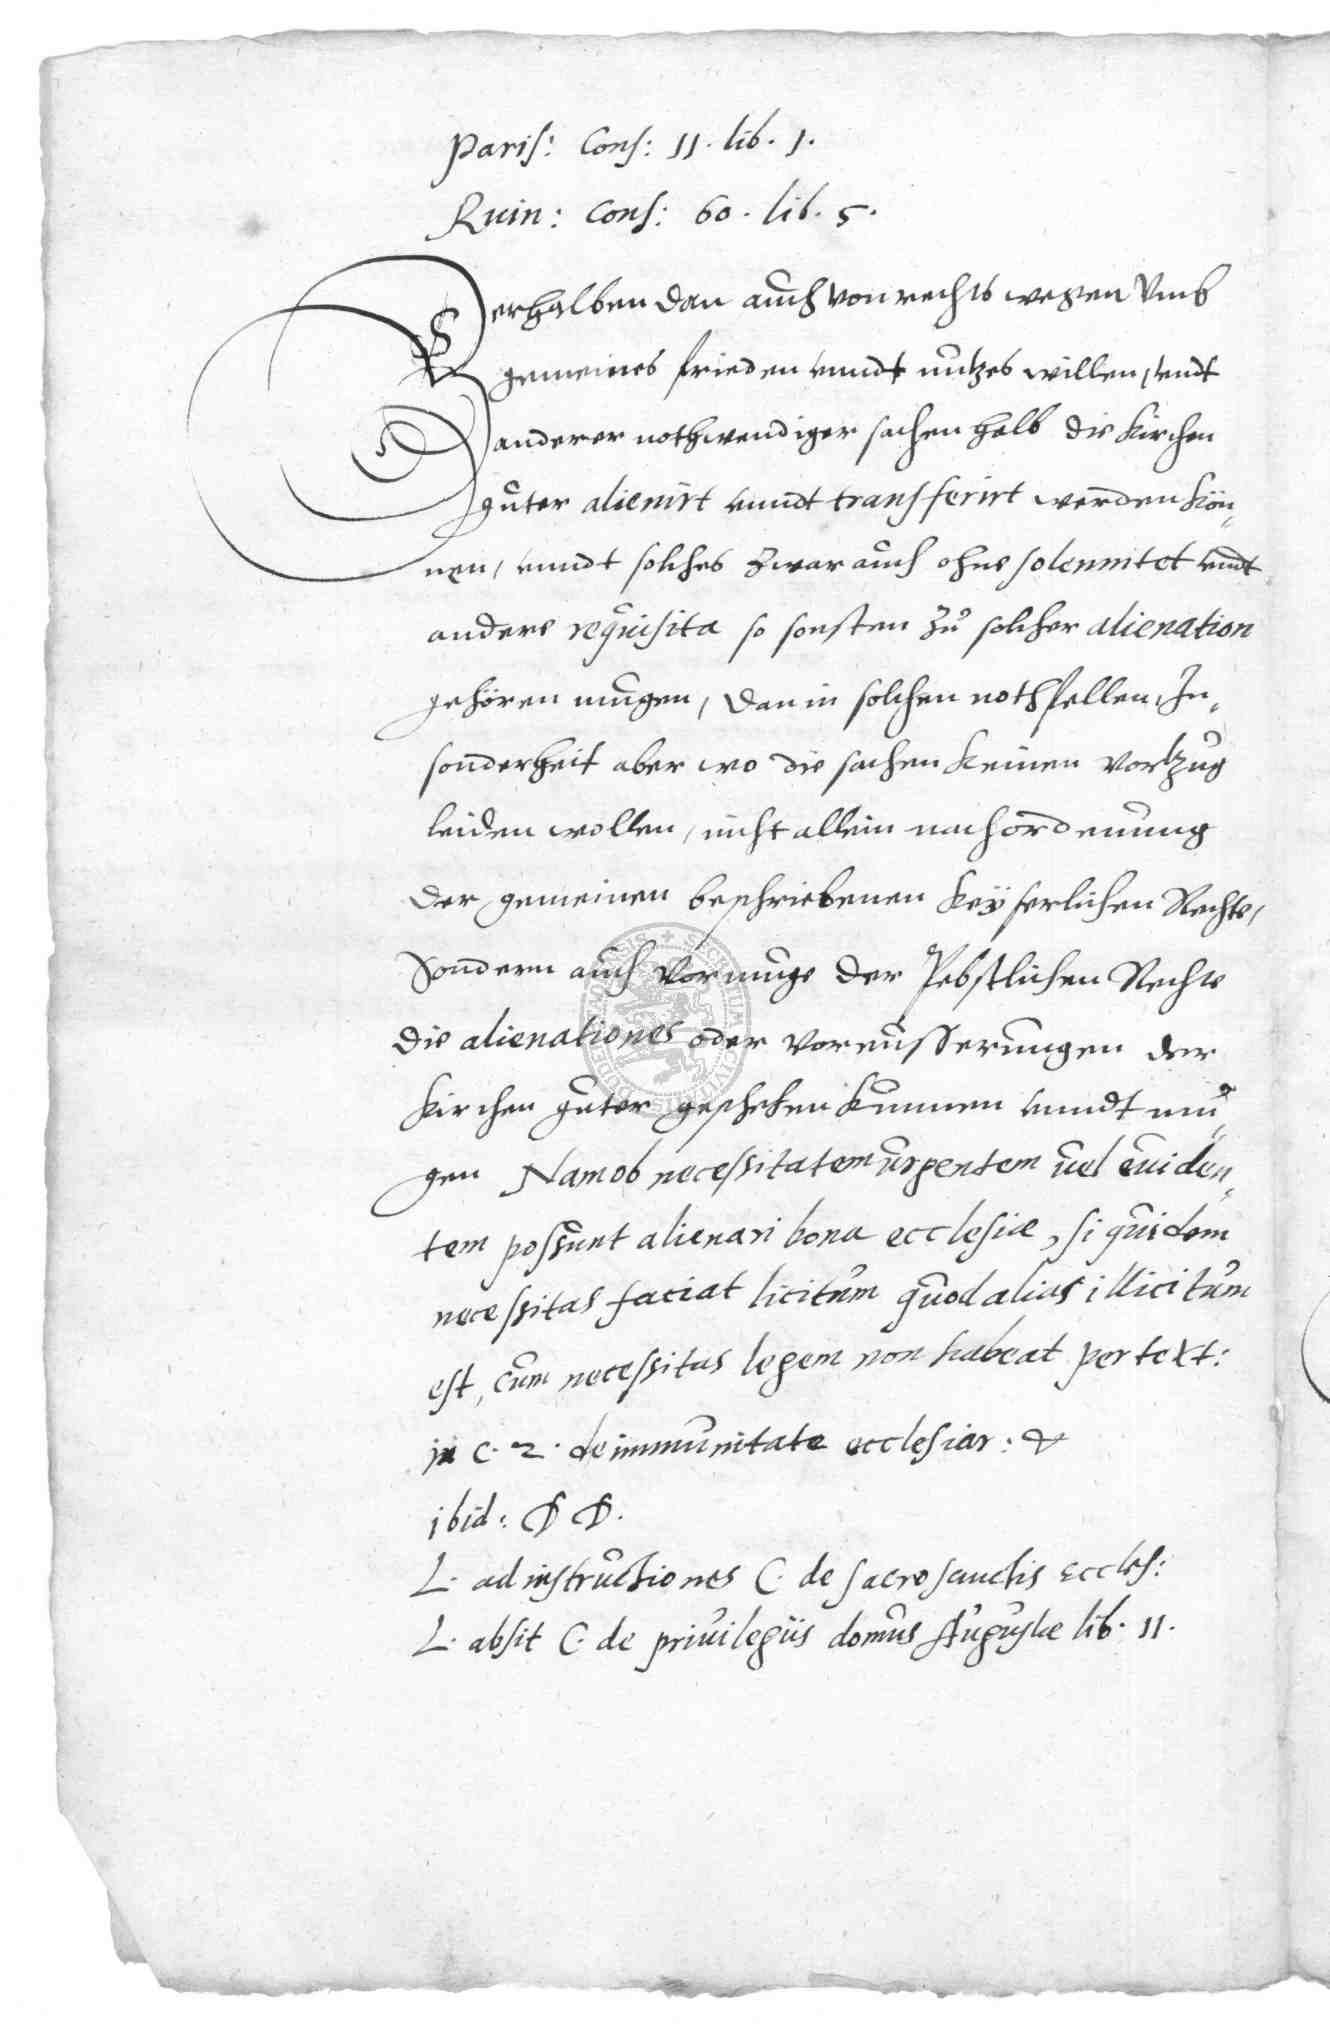 Paris: Cons: 11. lib. 1.
Ruin: Cons: 60. lib. 5.
Derhalben dan auch von rechts wegen Umb
gemeines frieden unndt nutzes willen, undt
anderer nothwendiger sachen halb die Kirchen
güter alienirt unndt transferirt werden Kön„
nen, unndt solches zwar auch ohne solennitet undt
andere requisita so sonsten zu solcher alienation
gehören mugen, dan in solchen nothfellen, In„
sonderheit aber wo die sachen keinen vortzug
leiden wollen, nicht allein nach ordenung
der gemeinen beschriebenen Keyserlichen Rechte,
Sondern auch vormuge der Pebstlichen Rechte
die alienationes oder voreusserungen der
Kirchen güter geschehen kunnen unndt mu„
gen Nam ob necessitatem urgentem vel eviden„
tem possunt alienari bona ecclesiae, si quidem
necessitas faciat licitum quod alias illicitum
est, cum necessitas legem non habeat per text:
in c. 2. de immunitate ecclesiar: &
ibid: DD.
L. ad instructiones C. de sacrosanctis eccles:
L. absit C. de privilegiis domus Augustae lib. 11.